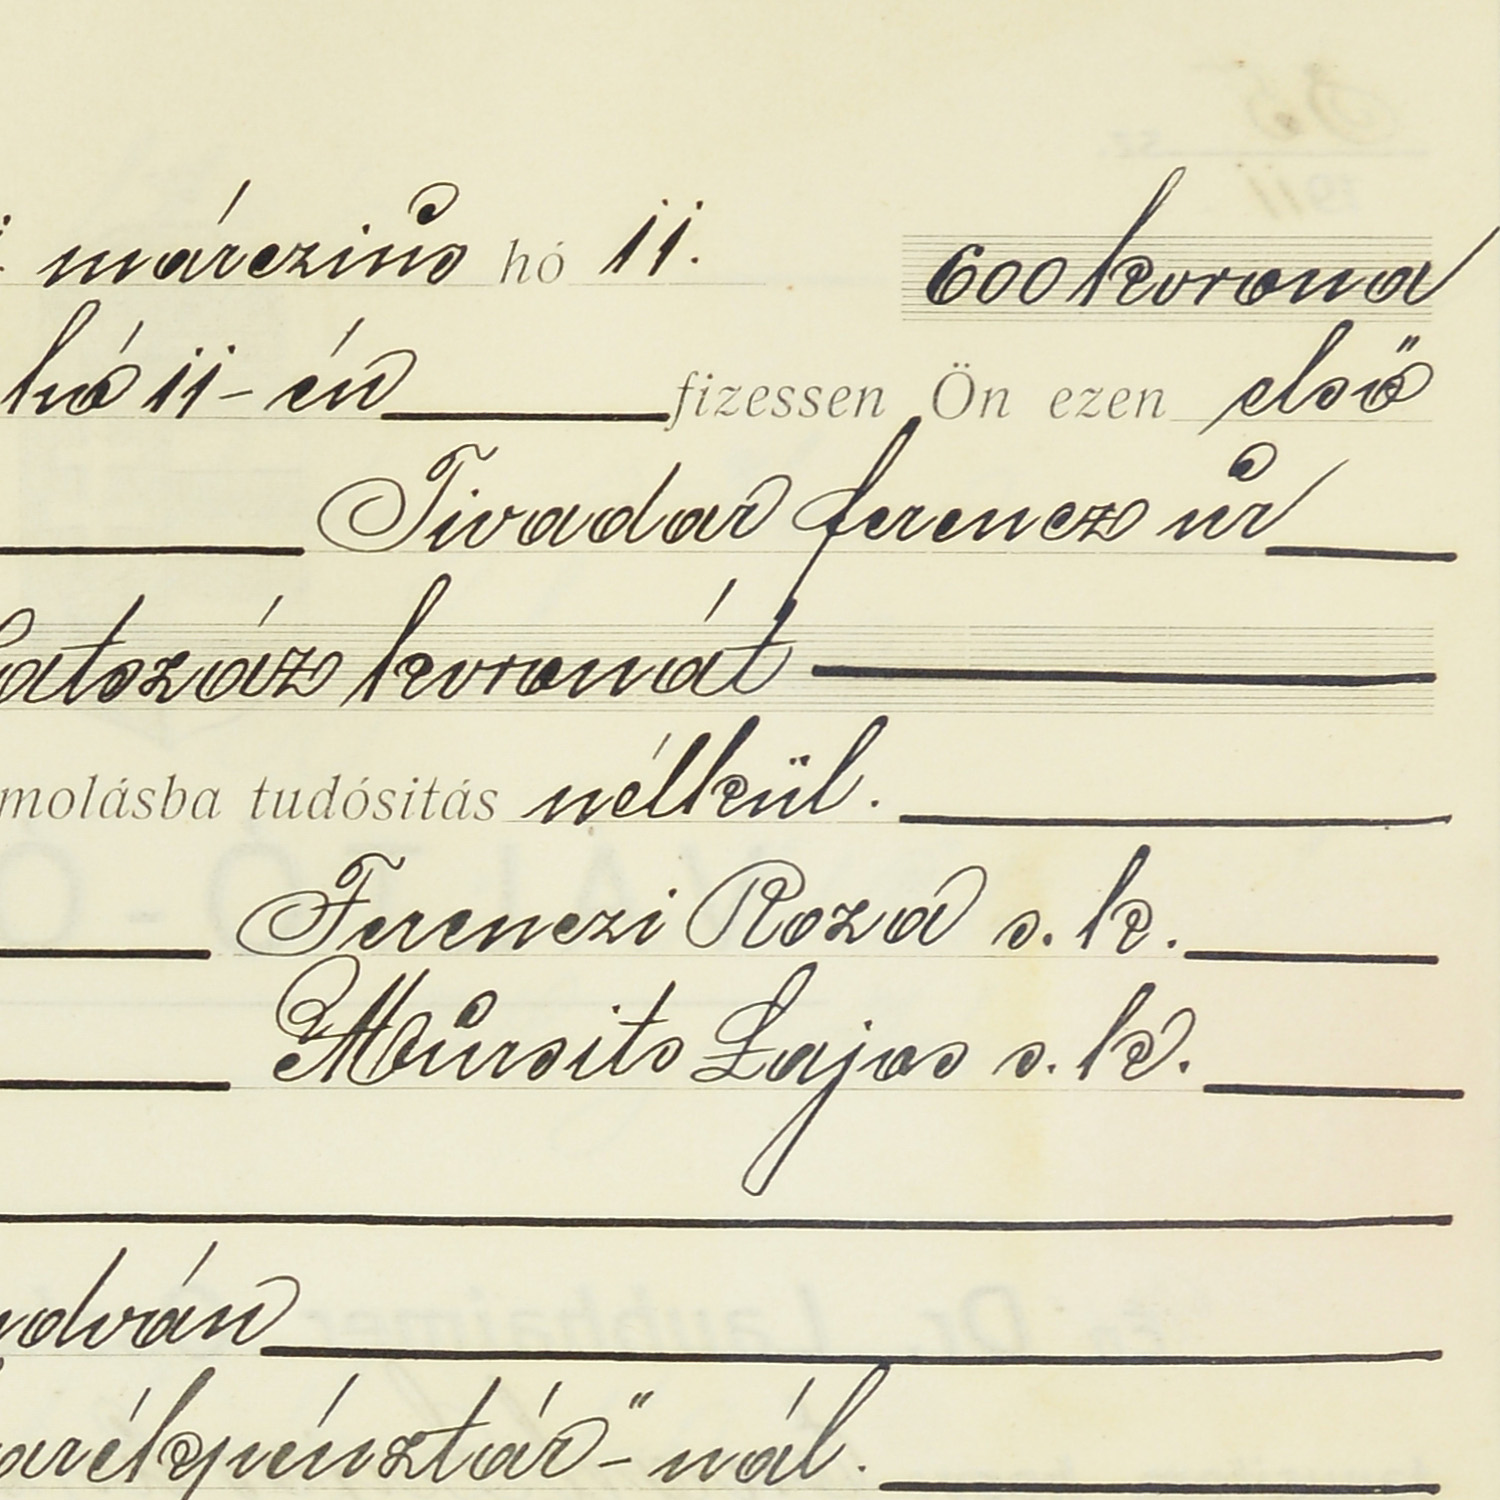 márczius hó 11. 600 korona
hó 11-én fizessen Ön ezen első
Tivadar ferencz úr
hatszáz koronát
molásba tudósitás nélkül.
Ferenczi Roza s. k.
Mursits Lajos s. k.
udván
arékpénztár"-nál.